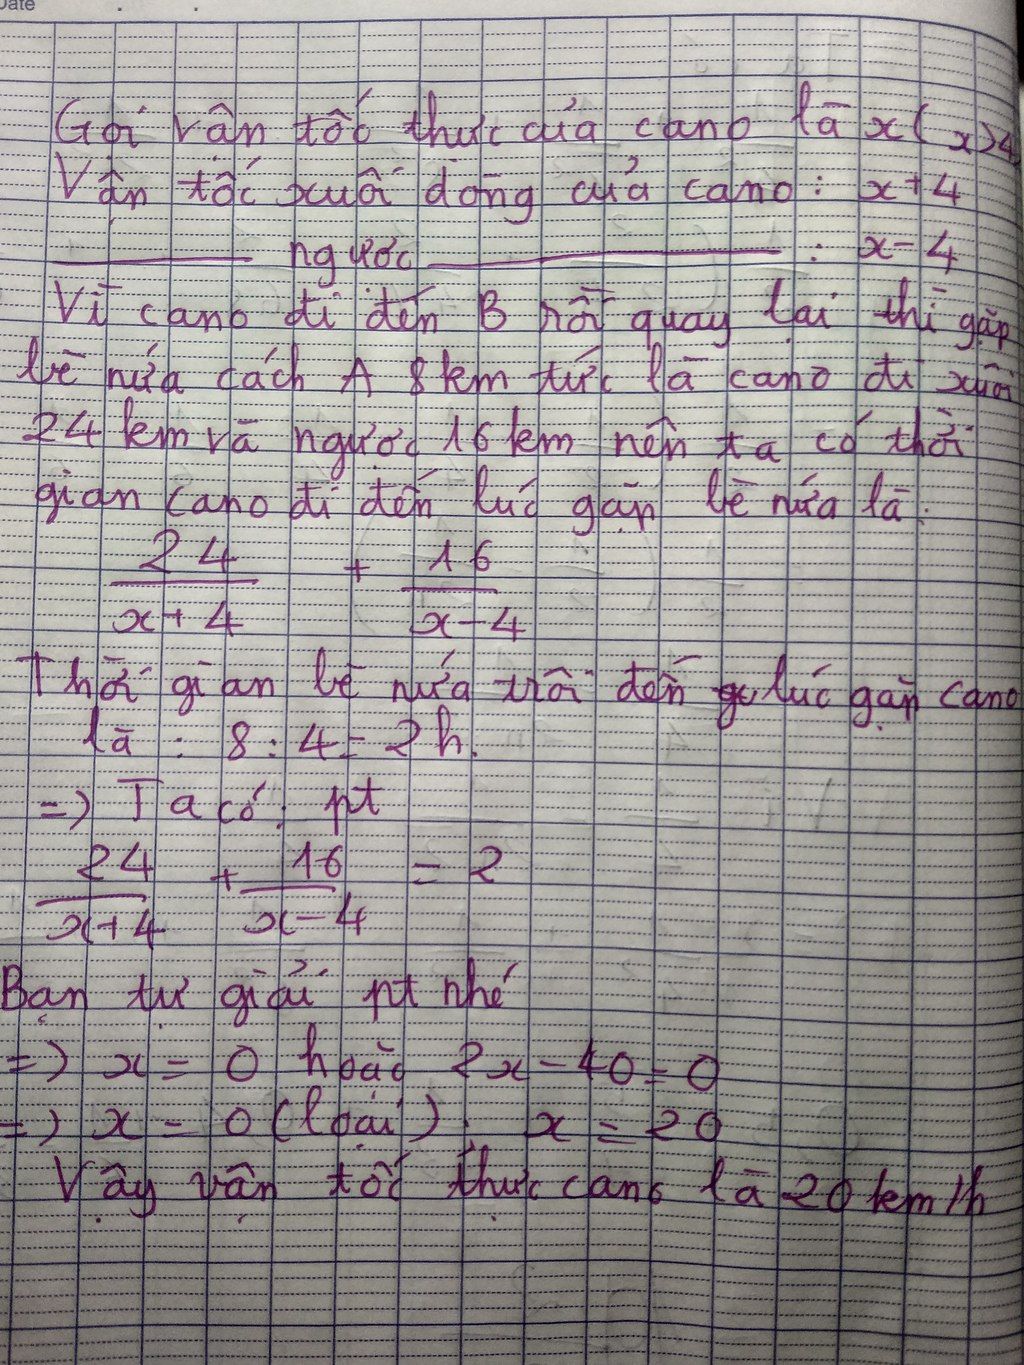 Date
Gọi vận tốc thực của cano là x (x>4
Vận tốc xuôi dòng của cano: x+4
ngược : x-4
Vì cano đi đến B rồi quay lại thì gặp
bè nứa cách A 8km tức là cano đi xuôi
24 km và ngược 16 km nên ta có thời
gian cano đi đến lúc gặp bè nứa là:
24/x+4 + 16/x-4
Thời gian bè nứa trôi đến lúc gặp cano
là : 8:4=2h.
=> Ta có: pt
24/x+4 + 16/x-4 = 2
Bạn tự giải pt nhé
=> x = 0 hoặc 2x-40=0
=> x = 0 (loại). x = 20
Vậy vận tốc thực cano là 20 km/h